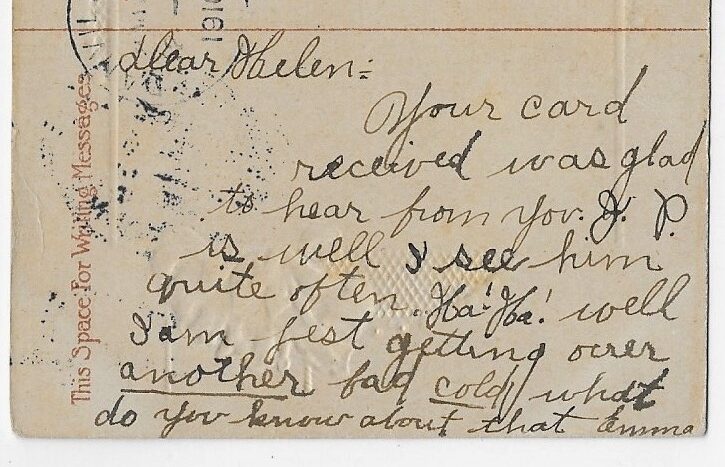 1910
Dear Helen:
Your card
received was glad
to hear from you. J. P.
is well I see him
quite often. Ha! Ha! well
I am jest getting over
another bad cold, what
do you know about that Emma
This Space For Writing Messages